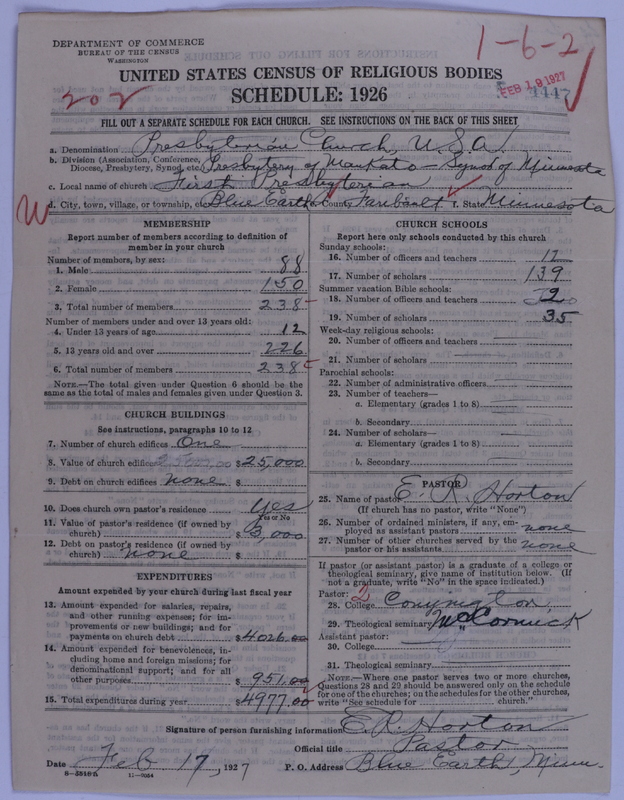 DEPARTMENT OF COMMERCE
BUREAU OF THE CENSUS
WASHINGTON
1-6-2
FEB 18 1927
1447
UNITED STATES CENSUS OF RELIGIOUS BODIES
202
SCHEDULE: 1926
FILL OUT A SEPARATE SCHEDULE FOR EACH CHURCH. SEE INSTRUCTIONS ON THE BACK OF THIS SHEET
a. Denomination Presbyterian Church, U.S.A.
b. Division (Association, Conference, Diocese, Presbytery, Synod etc.) Presbytery of Mankato - Synod of Minnesota
c. Local name of church First Presbyterian
d. City, town, village, or township, etc. Blue Earth e. County Faribault f. State Minnesota
MEMBERSHIP
Report number of members according to definition of
member in your church
Number of members, by sex:
1. Male 88
2. Female 150
3. Total number of members 238
Number of members under and over 13 years old:
4. Under 13 years of age 12
5. 13 years old and over 226
6. Total number of members 238
NOTE.—The total given under Question 6 should be the
same as the total of males and females given under Question 3.
CHURCH BUILDINGS
See instructions, paragraphs 10 to 12
7. Number of church edifices One
8. Value of church edifices $25,000
9. Debt on church edifices none $
10. Does church own pastor's residence Yes
Yes or No
11. Value of pastor's residence (if owned by
church) $ ,000
12. Debt on pastor's residence (if owned by
church) none $
EXPENDITURES
Amount expended by your church during last fiscal year
13. Amount expended for salaries, repairs,
and other running expenses; for im-
provements or new buildings; and for
payments on church debt $4026.00
14. Amount expended for benevolences, in-
cluding home and foreign missions; for
denominational support; and for all
other purposes $951.00
15. Total expenditures during year $4977.00
CHURCH SCHOOLS
Report here only schools conducted by this church
Sunday schools:
16. Number of officers and teachers 17
17. Number of scholars 139
Summer vacation Bible schools:
18. Number of officers and teachers 2
19. Number of scholars 35
Week-day religious schools:
20. Number of officers and teachers
21. Number of scholars
Parochial schools:
22. Number of administrative officers
23. Number of teachers—
a. Elementary (grades 1 to 8)
b. Secondary
24. Number of scholars—
a. Elementary (grades 1 to 8)
b. Secondary
PASTOR
25. Name of pastor E. R. Horton
(If church has no pastor, write "None")
26. Number of ordained ministers, if any, em-
ployed as assistant pastors none
27. Number of other churches served by the
pastor or his assistants none
If pastor (or assistant pastor) is a graduate of a college or
theological seminary, give name of institution below. (If
not a graduate, write "No" in the space indicated.)
Pastor: 2
28. College
29. Theological seminary McCormick
Assistant pastor:
30. College
31. Theological seminary
NOTE.—Where one pastor serves two or more churches,
Questions 28 and 29 should be answered only on the schedule
for one of the churches; on the schedules for the other churches,
write "See schedule for church."
Signature of person furnishing information E. R. Horton
Official title Pastor
Date Feb 17, 1927 P. O. Address Blue Earth, Minn.